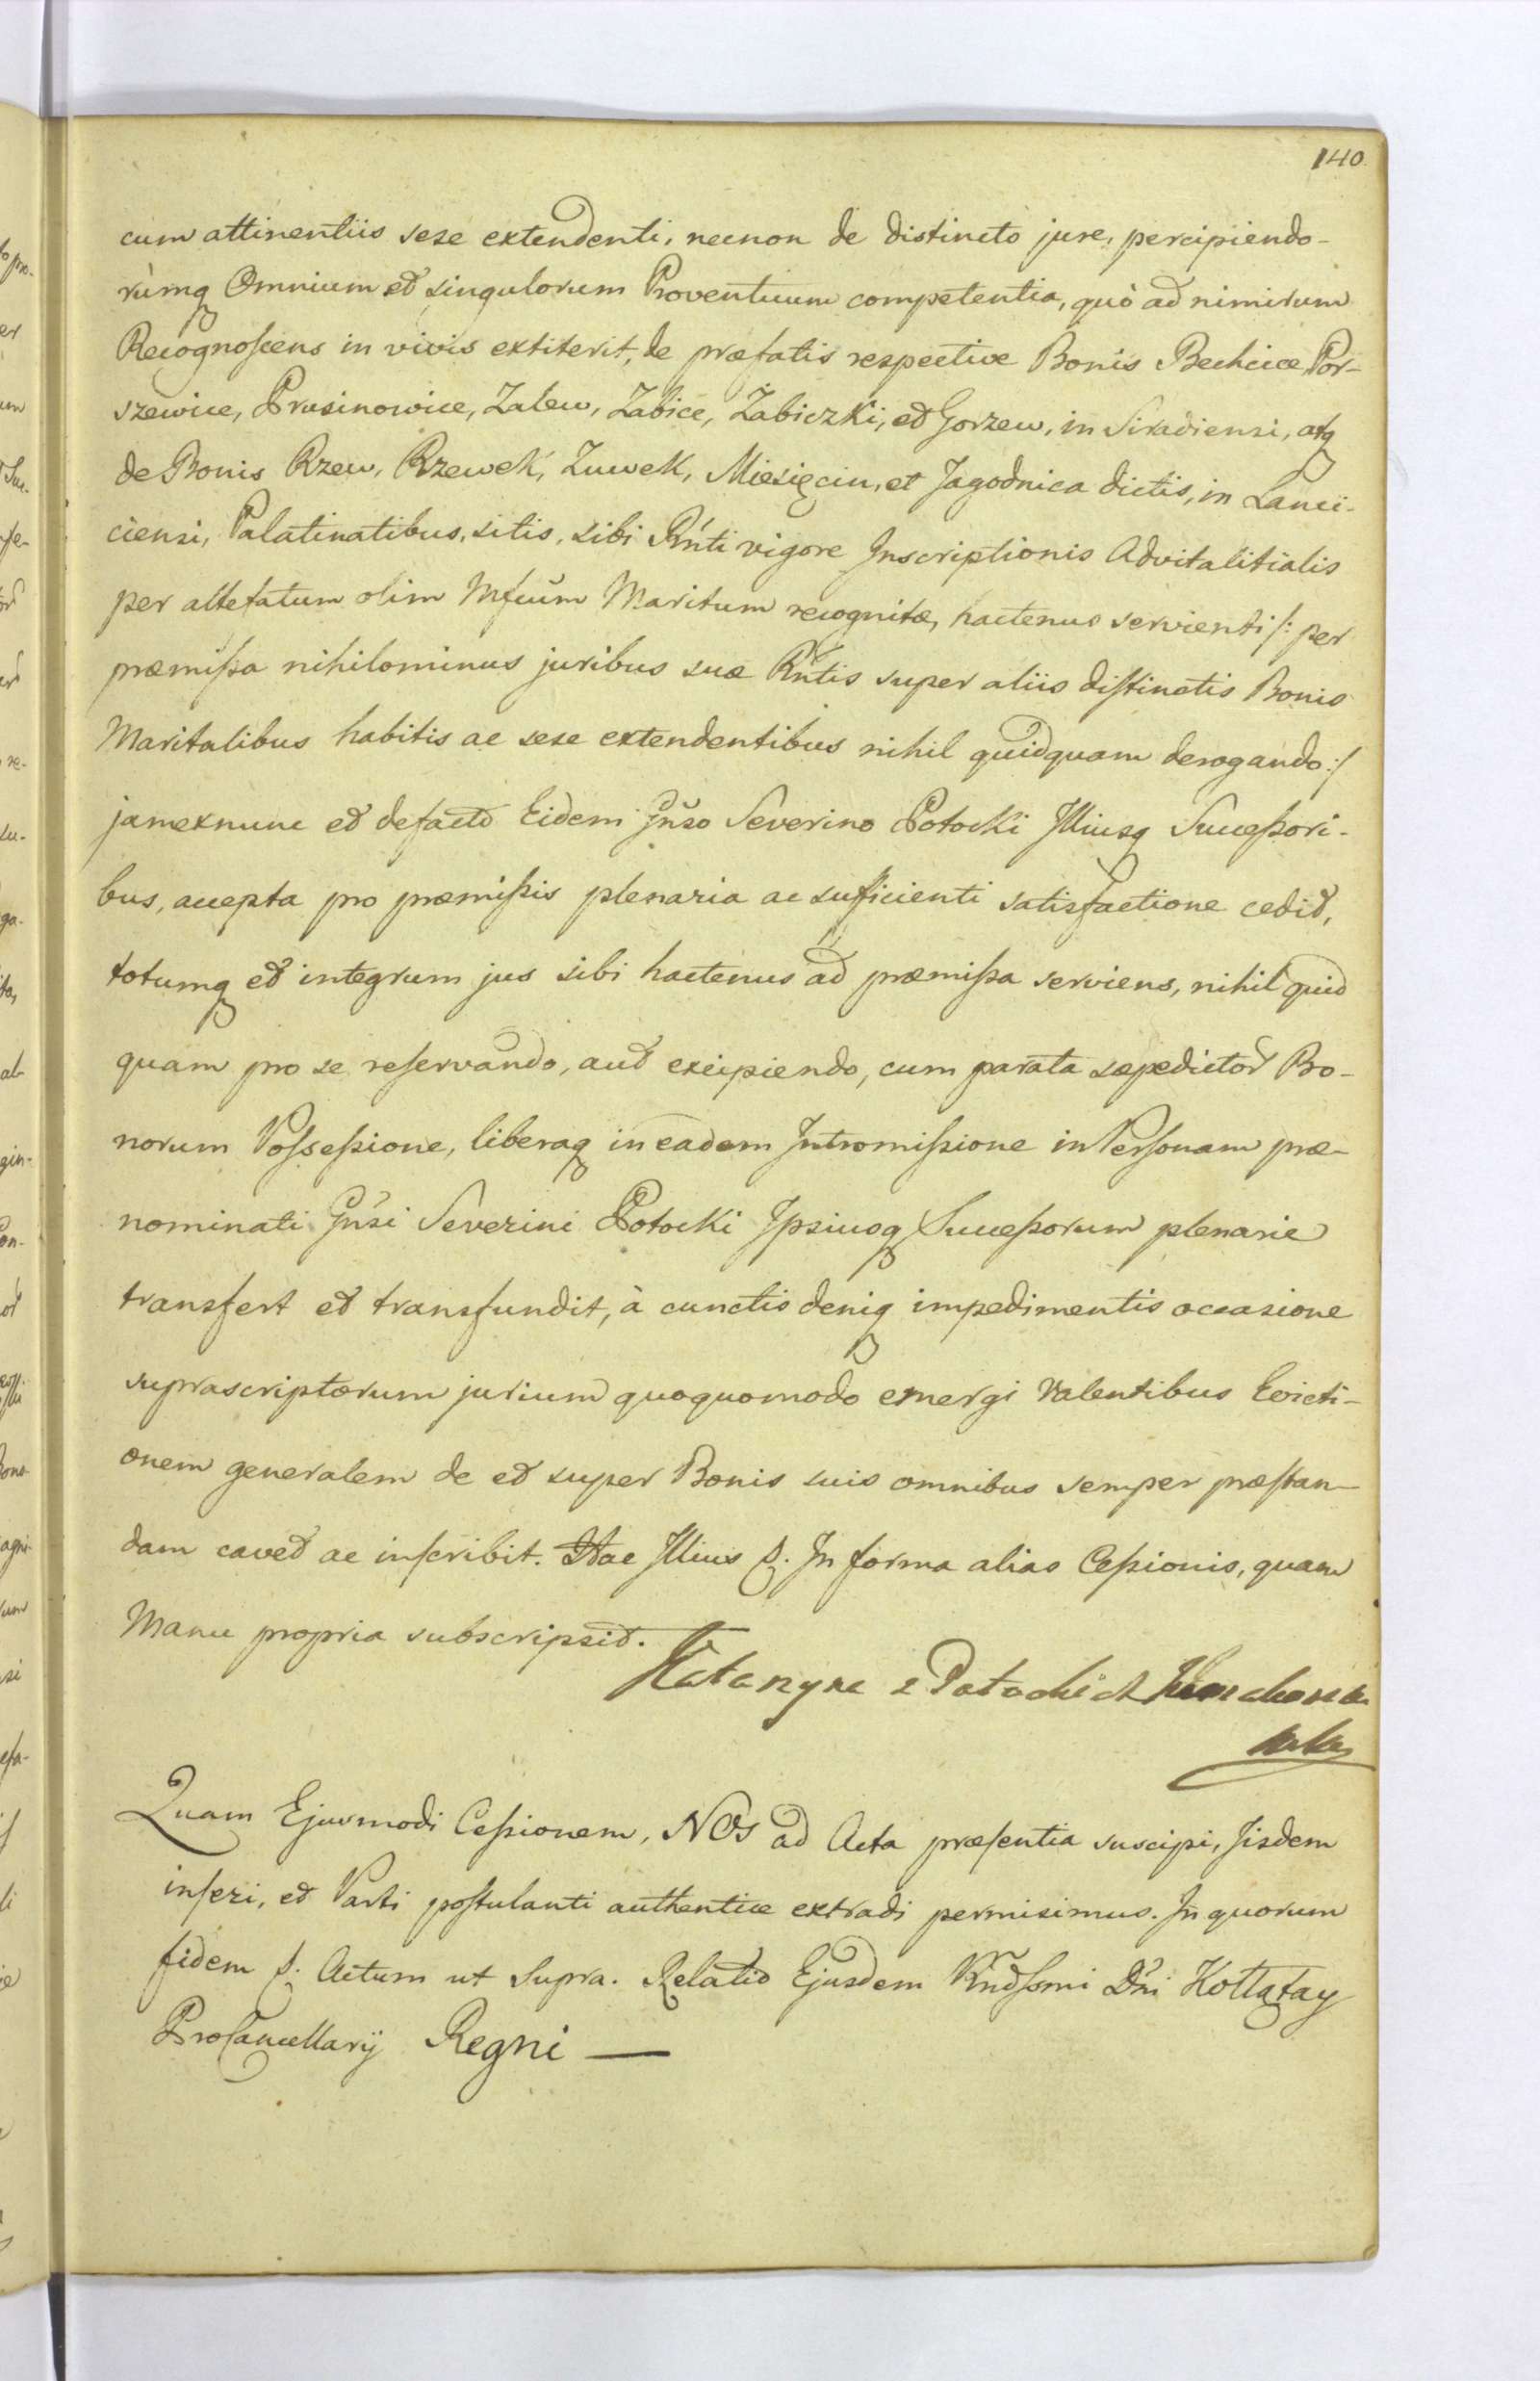 140
cum attinentiis sese extendenti, necnon de distincto jure, percipiendo-
rùmq Omnium et singulorum Proventuum competentia, quò ad nimirum
Recognoscens in vivis extiterit, de præfatis respective Bonis Bechcice, Por-
szewice, Prusinowice, Zalew, Zabice, Żabiczki, et Gorzew, in Siradiensi, atq
de Bonis Rzew, Rzewek, Zuwek, Miesięciu, et Jagodnica dictis, in Lanci-
ciensi, Palatinatibus, sitis, sibi Rnti vigore Inscriptionis Advitalitialis
per attefatum olim Mfcum Maritum recognitæ, hactenus servienti /: per
præmissa nihilominus juribus suæ Rntis super aliis distinctis Bonis
Maritalibus habitis ac sese extendentibus nihil quidquam derogando :/
jamexnunc et defacto Eidem Gnso Severino Potocki Illiusq Successori-
bus, accepta pro præmissis plenaria ac sufficienti satisfactione cedit,
totumq et integrum jus sibi hactenus ad præmissa serviens, nihil quid
quam pro se reservando, aut excipiendo, cum parata sæpedictor Bo-
norum Possessione, liberaq in eadem Intromissione in Personam præ-
nominati Gnsi Severini Potocki Ipsiusq Successorum plenarie
transfert et transfundit, à cunctis deniq impedimentis occasione
suprascriptorum jurium quoquomodo emergi valentibus Evicti-
onem generalem de et super Bonis suis omnibus semper præstan-
dam cavet ac inscribit. Hac Illius p. In forma alias Cessionis, quam
Manu propria subscripsit.
Katarzyna z Potockich
Quam Ejusmodi Cessionem, NOS ad Acta præsentia suscipi, Iisdem
inseri, et Parti postulanti authentice extradi permisimus. In quorum
fidem p. Actum ut Supra. Relatio Ejusdem Rndssmi Dni Kołłątay
ProCancellarij Regni —